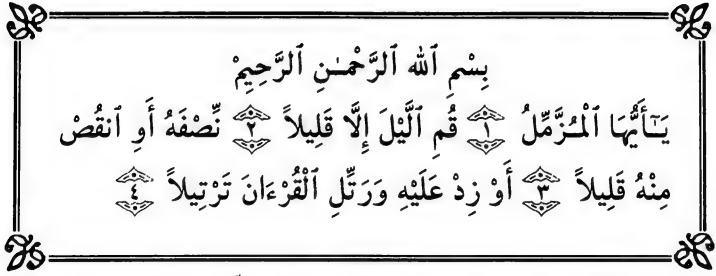 بِسْمِ ٱللَّهِ ٱلرَّحْمَـٰنِ ٱلرَّحِيمِ
يَـٰٓأَيُّهَا ٱلْمُزَّمِّلُ ١ قُمِ ٱلَّيْلَ إِلَّا قَلِيلاً ٢ نِّصْفَهُ أَوِ ٱنقُصْ
مِنْهُ قَلِيلاً ٣ أَوْ زِدْ عَلَيْهِ وَرَتِّلِ ٱلْقُرْءَانَ تَرْتِيلاً ٤